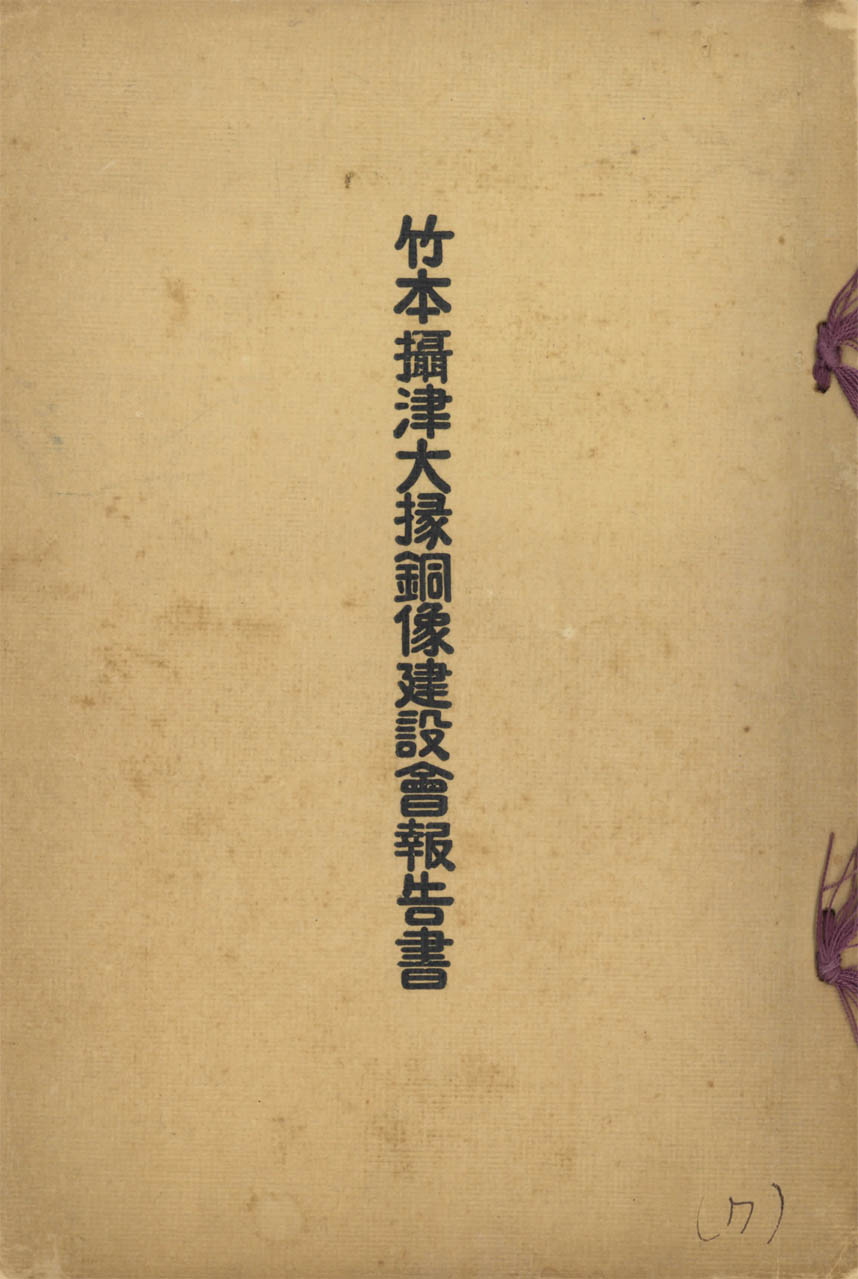 竹本攝津大掾銅像建設會報告書
(ワ)